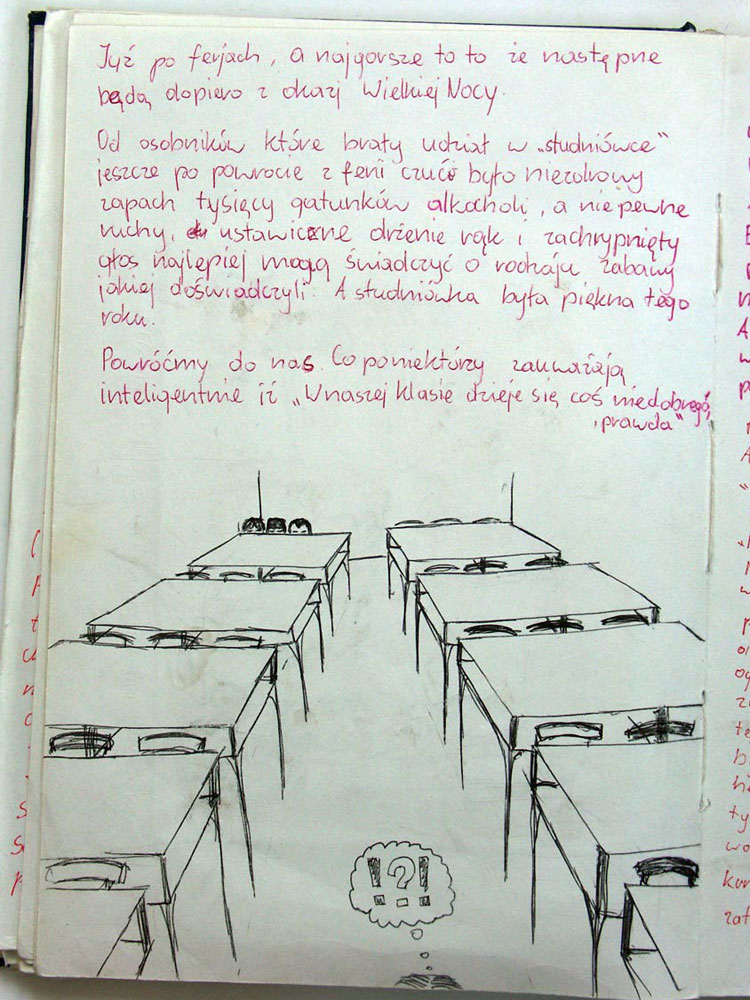 Już po ferjach, a najgorsze to to że następne
będą dopiero z okazj Wielkiej Nocy.
Od osobników które brały udział w „studniówce"
jeszcze po powrocie z ferii czuć było niezdrowy
zapach tysięcy gatunków alkocholi, a niepewne
ruchy, ustawiczne drżenie rąk i zachrypnięty
głos najlepiej mogą świadczyć o rodzaju zabawy
jakiej doświadczyli. A studniówka była piękna tego
roku.
Powróćmy do nas. Co poniektórzy zauważają
inteligentnie iż „Wnaszej klasie dzieje się coś niedobrego,
prawda"
!?!